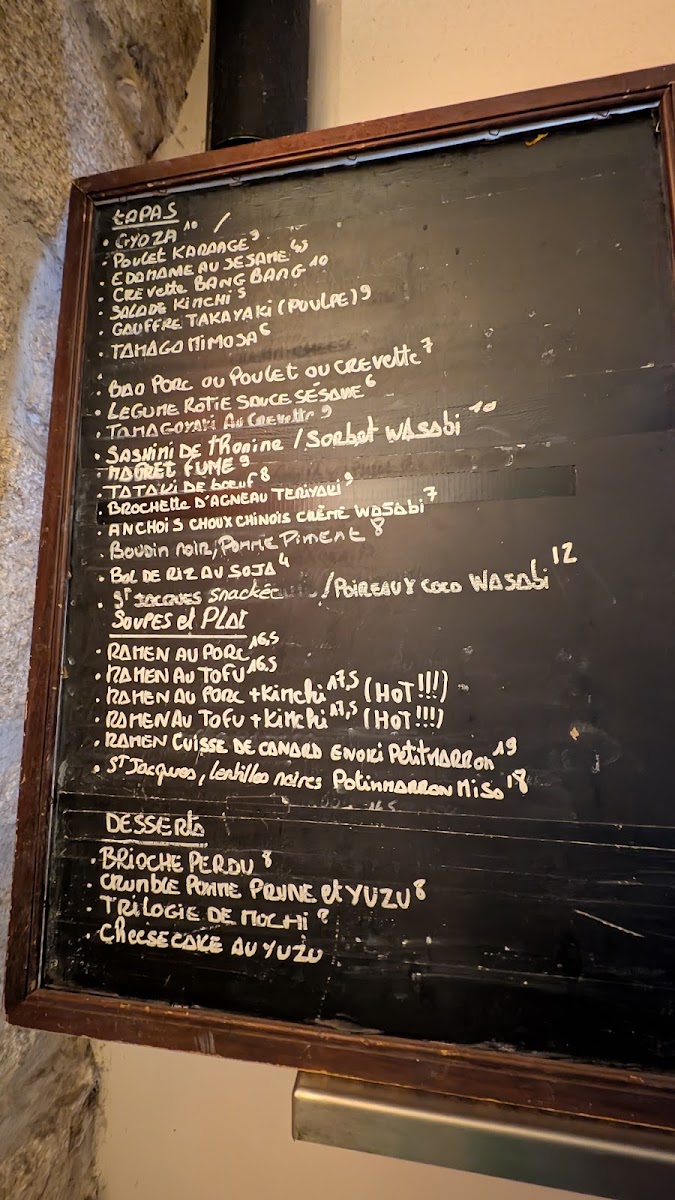 tAPAS
• GYOZA 10 /
• POULET KARAAGE 9
• EDAMAME AU SESAME 4,5
• CREVETTE BANG BANG 10
• SALADE KIMCHI 5
• GAUFFRE TAKAYAKI (POULPE) 9
• TAMAGO MIMOSA 6
• BAO PORC OU POULET OU CREVETTE 7
• LEGUME ROTIE SAUCE SÉSAME 6
• TAMAGOYAKI AU CREVETTE 9
• SASHIMI DE THONINE / SORBET WASABI 10
• MAGRET FUME 9
• TATAKI DE BOEUF 8
• BROCHETTE D'AGNEAU TERIYAKI 9
• ANCHOIS CHOUX CHINOIS CRÈME WASABI 7
• BOUDIN NOIR, POMME PIMENT 8
• BOL DE RIZ AU SOJA 4
• ST JACQUES SNACKÉE /POIREAUX COCO WASABI 12
SOUPES et PLAT
• RAMEN AU PORC 16,5
• RAMEN AU TOFU 16,5
• RAMEN AU PORC + KIMCHI 17,5 (HOT !!!)
• RAMEN AU TOFU + KIMCHI 17,5 (HOT !!!)
• RAMEN CUISSE DE CANARD ENOKI PETITMARRON 19
• ST JACQUES, LENTILLES NOIRES POTINMARRON MISO 18
DESSERTS
• BRIOCHE PERDU 8
• CRUMBLE POMME PRUNE et YUZU 8
• TRILOGIE DE MOCHI 9
• CHEESECAKE AU YUZU